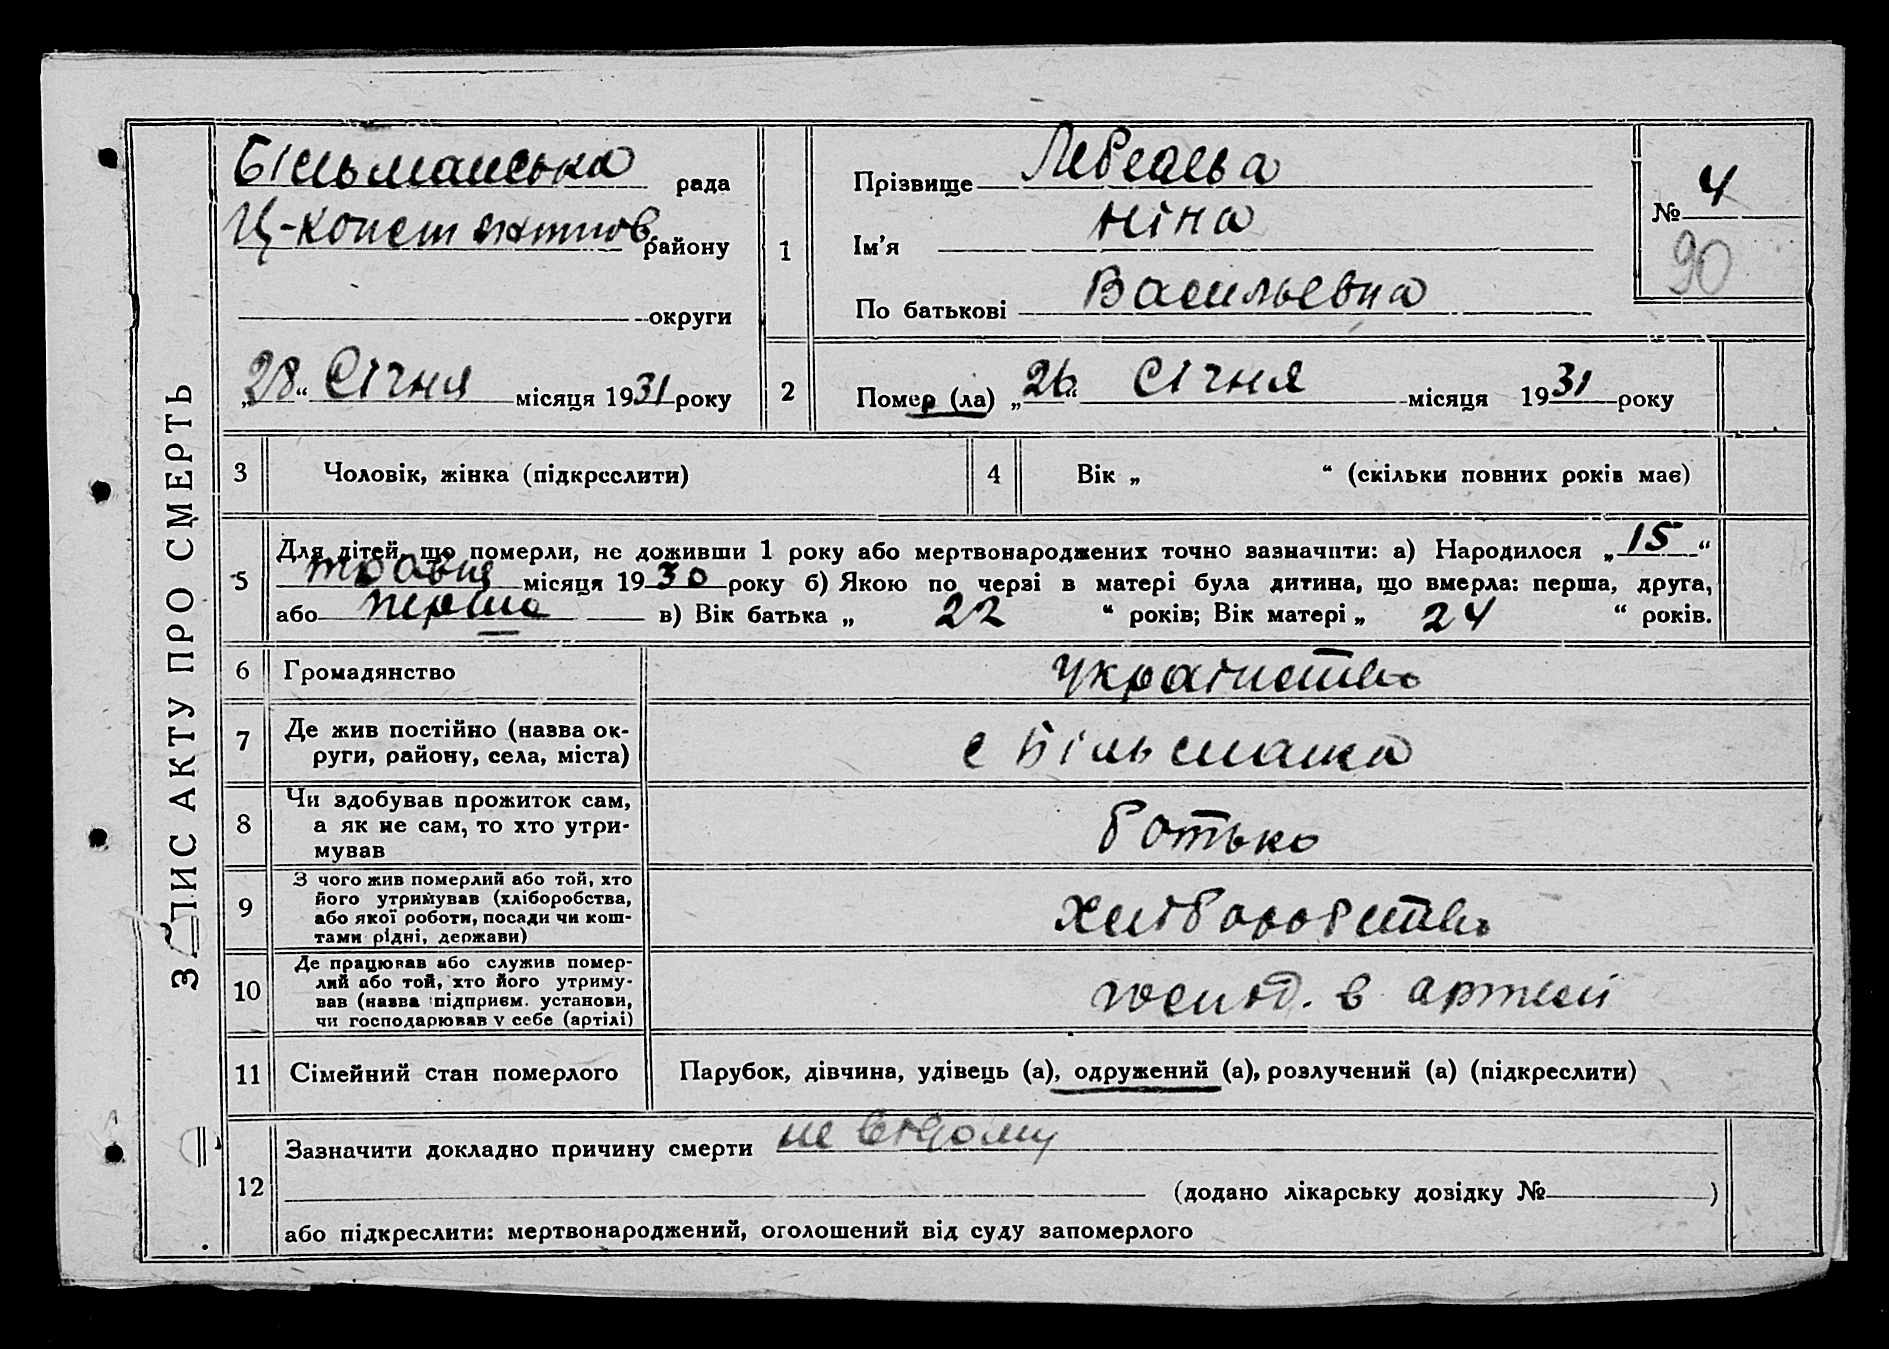 ЗАПИС АКТУ ПРО СМЕРТЬ
Більманська рада
Ц-Констянтинов. району
округи
„28“ Січня місяця 1931 року
1
Прізвище Лебедева
Ім'я Ніна
По батькові Васильевна
№ 4
90
2
Помер (ла) „26“ Січня місяця 1931 року
3 Чоловік, жінка (підкреслити)
4 Вік „ “ (скільки повних років має)
5 Для дітей, що померли, не доживши 1 року або мертвонароджених точно зазначити: а) Народилося „15“
травня місяця 1930 року б) Якою по черзі в матері була дитина, що вмерла: перша, друга,
або перша в) Вік батька „ 22 “ років; Вік матері „ 24 “ років.
6 Громадянство Украінство
7 Де жив постійно (назва ок-
руги, району, села, міста)
с Більманка
8 Чи здобував прожиток сам,
а як не сам, то хто утри-
мував
батько
9 З чого жив померлий або той, хто
його утримував (хліборобства,
або якої роботи, посади чи кош-
тами рідні, держави)
Хліборобство
10 Де працював або служив помер-
лий або той, хто його утриму-
вав (назва підприєм. установи,
чи господарював у себе (артілі)
госпód. в артілі
11 Сімейний стан померлого Парубок, дівчина, удівець (а), одружений (а), розлучений (а) (підкреслити)
12 Зазначити докладно причину смерти не відому
(додано лікарську довідку № )
або підкреслити: мертвонароджений, оголошений від суду запомерлого